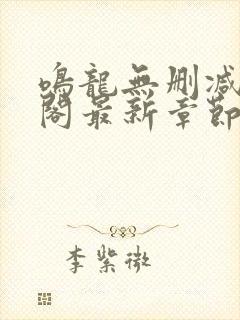 鳴龍無刪減
閣最新章節
李紫微